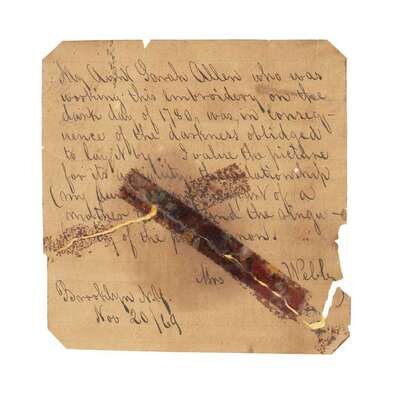 My Aunt Sarah Allen who was
working this embroidery on the
dark day of 1780, was in conseq-
uence of the darkness obliged
to lay it I value the picture
for its relationship
(my of a
mother and the singu-
of the phenomenon.
Mrs Webb
Brooklyn N.Y.
Nov 20/69